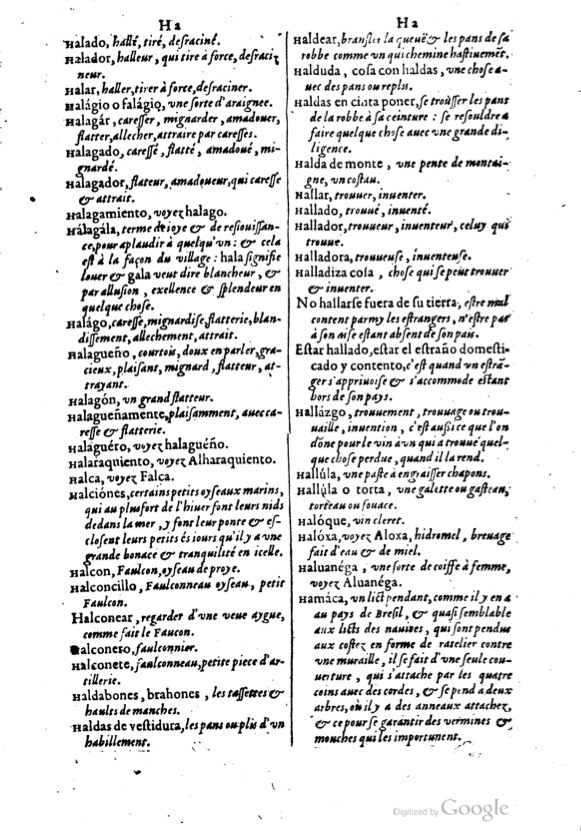 Ha
Halado, hallé, tiré, desraciné.
Halador, halleur, qui tire à force, desraci-
neur.
Halar, haller, tirer à force, desraciner.
Halágio o falágio, vne sorte d'araignee.
Halagár, caresser, mignarder, amadouer,
flatter, allecher, attraire par caresses.
Halagado, caressé, flatté, amadoué, mi-
gnardé.
Halagador, flateur, amadoueur, qui caresse
& attrait.
Halagamiento, voyez halago.
Hálagála, terme de ioye & de resiouissan-
ce, pour aplaudir à quelqu'vn: & cela
est à la façon du village: hala signifie
louer & gala veut dire blancheur, &
par allusion, exellence & splendeur en
quelque chose.
Halágo, caresse, mignardise, flatterie, blan-
dissement, allechement, attrait.
Halagueño, courtois, doux en parler, gra-
cieux, plaisant, mignard, flatteur, at-
trayant.
Halagón, vn grand flatteur.
Halagueñamente, plaisamment, auec ca-
resse & flatterie.
Halaguéro, voyez halaguéño.
Halaraquiento, voyez Alharaquiento.
Halca, voyez Falca.
Halciónes, certains petits oyseaux marins,
qui au plus fort de l'hiuer font leurs nids
dedans la mer, y font leur ponte & es-
closent leurs petits és iours qu'il y a vne
grande bonace & tranquilité en icelle.
Halcon, Faulcon, oyseau de proye.
Halconcillo, Faulconneau oyseau, petit
Faulcon.
Halconear, regarder d'vne veue aygue,
comme fait le Faucon.
Halconero, faulconnier.
Halconete, faulconneau, petite piece d'ar-
tillerie.
Haldabones, brahones, les tassettes &
haults de manches.
Haldas de vestidura, les pans ou plis d'vn
habillement.
Ha
Haldear, bransler la queuë & les pans de sa
robbe comme vn qui chemine hastiuemēt.
Halduda, cosa con haldas, vne chose a-
uec des pans ou replis.
Haldas en cinta poner, se trousser les pans
de la robbe à sa ceinture: se resouldre à
faire quelque chose auec vne grande di-
ligence.
Halda de monte, vne pente de montai-
gne, vn costau.
Hallar, trouuer, inuenter.
Hallado, trouué, inuenté.
Hallador, trouueur, inuenteur, celuy qui
trouue.
Halladora, trouueuse, inuenteuse.
Halladiza cosa, chose qui se peut trouuer
& inuenter.
No hallarse fuera de su tierra, estre mal
content parmy les estrangers, n'estre pas
à son aise estant absent de son païs.
Estar hallado, estar el estraño domesti-
cado y contento, c'est quand vn estrā-
ger s'appriuoise & s'accommode estant
hors de son pays.
Hallázgo, trouuement, trouuage ou trou-
uaille, inuention, c'est aussi ce que l'on
dōne pour le vin à vn qui a trouué quel-
que chose perdue, quand il la rend.
Hallúla, vne paste à engraisser chapons.
Hallúla o torta, vne galette ou gasteau,
torteau ou fouace.
Halóque, vin cleret.
Halóxa, voyez Aloxa, hidromel, breuage
fait d'eau & de miel.
Haluanéga, vne sorte de coiffe à femme,
voyez Aluanéga.
Hamáca, vn lict pendant, comme il y en a
au pays de Bresil, & quasi semblable
aux licts des nauires, qui sont pendus
aux costez en forme de ratelier contre
vne muraille, il se fait d'vne seule cou-
uerture, qui s'attache par les quatre
coins auec des cordes, & se pend a deux
arbres, où il y a des anneaux attachez,
& ce pour se garantir des vermines &
mouches qui les importunent.
Digitized by Google